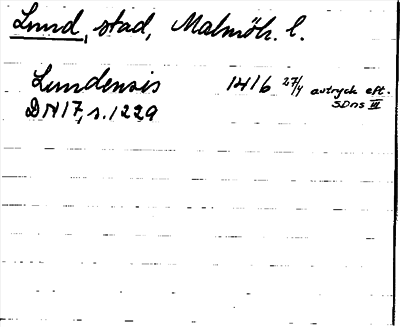 Lund, stad, Malmöh. l.
Lundensis 1416 27/4 avtryck eft.
SDns III
DN 17, s. 1229